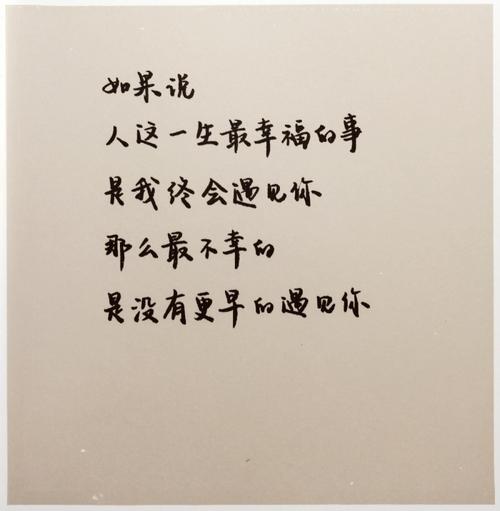 如果说
人这一生最幸福的事
是我终会遇见你
那么最不幸的
是没有更早的遇见你